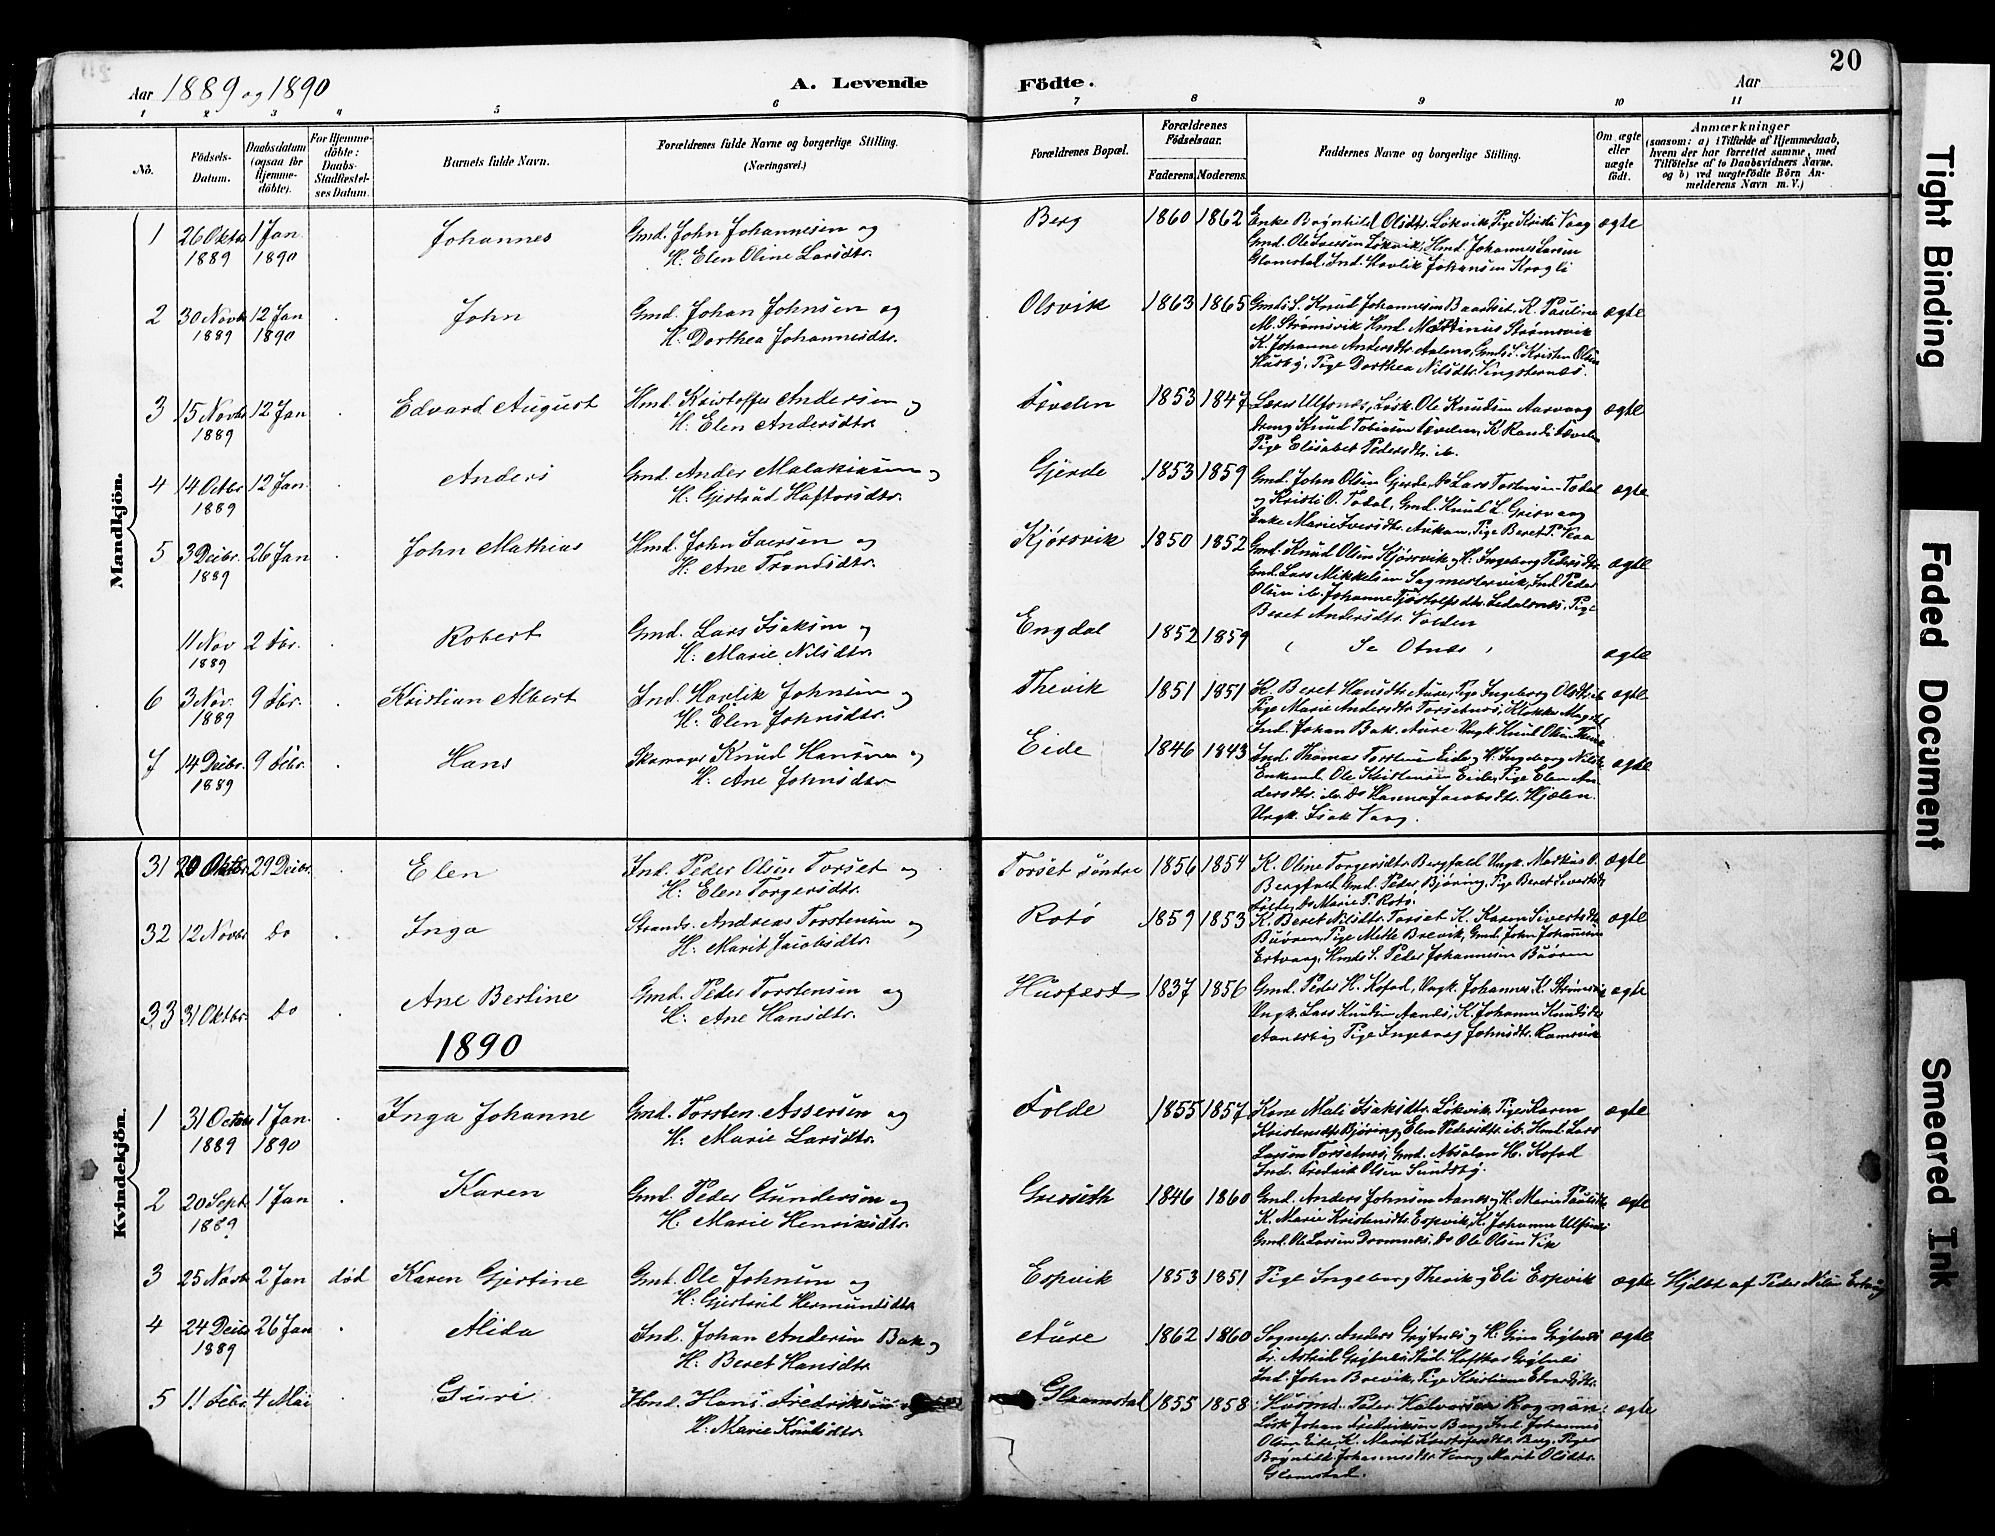 20
Aar 1889 og 1890 A. Levende Födte. Aar
1 2 3 4 5 6 7 8 9 10 11
No. Födsels-Datum. Daabsdatum (ogsaa for Hjemme-döbte). For Hjemme-döbte: Daabs-Stadfæstel-ses Datum. Barnets fulde Navn. Forældrenes fulde Navne og borgerlige Stilling. (Næringsvei.) Forældrenes Bopæl. Forældrenes Födselsaar. Faderens. Moderens. Faddernes Navne og borgerlige Stilling. Om ægte eller uægte födt. Anmærkninger (saasom: a) i Tilfælde af Hjemmedaab, hvem der har forrettet samme, med Tilföielse af to Daabsvidners Navne. og b) ved uægtefödte Börn An-melderens Navn m. V.)
Mandkjön.
1 26 Oktbr 1889 1 Jan 1890 Johannes Gmd. John Johannesen og H. Elen Oline Larsdtr. Berg 1860 1862 Enke Brynhild Olsdtr. Løkvik, Pige Kristi Vaag
Gmd. Ole Iversen Løkvik, Hmd. Johannes Larsen
Glamstal. Ind. Havlik Johansen ægte
2 30 Novb 1889 12 Jan 1890 John Gmd. Johan Johnsen og H. Dorthea Johannesdtr. Olsvik 1863 1865 Gmds S. Knud Johannesen Baardset, K. Pauline
M. Strømsvik Hmd Martinus Strømsvik
K. Johanne Andersdtr. Gmds S. Kristen Olsen
Husby, Pige Dorthea Nilsdtr. ægte
3 15 Novbr 1889 12 Jan Edvard August Hmd. Kristoffer Andersen og H. Elen Andersdtr. 1853 1847 Ulfsnes, Løsk. Ole Knudsen Aarvaag
Knud Tobiasen K Randi
Pige Elisabet Pedersdtr. ib. ægte
4 14 Octbr 1889 12 Jan Anders Gmd. Anders Malakiasen og H. Gjertrud Haftorsdtr. Gjerde 1853 1859 Gmd. John Olsen Gjerde, Do Lars Torstensen Todal
og Kristi O. Todal, Gmd. Knud L.
Enke Marie Iversdtr. Aukan, Pige Beret P. ægte
5 3 Decbr. 1889 26 Jan John Mathias Hmd. John Iversen og H. Ane Trondsdtr. Kjørsvik 1850 1852 Gmd. Knud Olsen Kjørsvik og H. Ingeborg Pedersdtr.
Gmd. Lars Mikkelsen Sagmestervik, Ind. Peder
Olsen ib. Johanne Pige
Beret Andersdtr. Volden ægte
11 Nov 1889 2 Fbr. Robert Gmd. Lars Isaksen og H. Marie Nilsdtr. Engdal 1852 1859 ( Se Otnes ) ægte
6 3 Nov. 1889 9 Fbr. Kristian Albert Ind. Havlik Johnsen og H. Elen Johnsdtr. Thevik 1851 1851 K. Beret Hansdtr. Aure, Pige Ingeborg Olsdtr. ib
Pige Marie Andersdtr Torsetnes, Klokker
Ind. Johan Bak. Aure Ungk Knud Olsen Thevik ægte
7 14 Decbr. 1889 9 Febr. Hans Skomager Knud Hansen og H. Ane Johnsdtr. Eide 1846 1843 Ind. Thomas Torstensen Eide og H. Ingeborg Nilsdtr.
Enkemd. Ole Kristensen Eide, Pige Elen An-
dersdtr. ib. Do Hanna Jacobsdtr. Hjælen
Ungk. Isak Vaag. ægte
Kvindekjön.
31 20 Oktbr. 29 Decbr. Elen Ind. Peder Olsen Torset og H. Elen Torgersdtr. Torset søndre 1856 1854 K. Oline Torgersdtr. Bergfald Ungk. Markus O.
Bergfald, Gmd. Peder Bjøring, Pige Beret Sivertsdtr
Folde, Do Marie P. Rotø. ægte
32 12 Novbr Do Inga Strands. Andreas Torstensen og H. Marit Jacobsdtr. Rotø 1859 1853 K. Beret Nilsdtr. Torset K. Karen Sivertsdtr
Buøren, Pige Mette Brevik, Gmd. John Johansen
Ertvaag, Hmds S. Peder Johannesen Buøren ægte
33 31 Oktbr. Do Ane Bertine Gmd. Peder Torstensen og H. Ane Hansdtr. Husfæst 1837 1856 Gmd. Peder H. Kofod, Ungk. Johannes K. Strømsvig
Ungk. Lars Knudsen Aanes, K. Johanne Knudsdtr
Pige Ingeborg Johnsdtr. Ramsvik ægte
1890
1 31 Octbr 1889 1 Jan. 1890 Inga Johanne Gmd. Torsten Assersen og H. Marie Larsdtr. Folde 1855 1857 Kone Mali Isaksdtr. Løkvik, Piger Karen
Kristensdtr Bjøring, Elen Pedersdtr. ib. Hmd. Lars
Larsen Torsetnes, Gmd. Absalon H. Kofod
Ind. Fredrik Olsen Sundsby. ægte
2 20 Sept. 1889 1 Jan Karen Gmd. Peder Gundersen og H. Marie Henriksdtr. 1846 1860 Gmd. Anders Johnsen Aanes og K. Marie Paulsdtr
K. Marie Kristensdtr. Espvik, K. Johanna Ulfsnes
Gmd. Ole Larsen Dromnes, Do Ole Olsen Vik ægte
3 25 Novb 2 Jan død Karen Gjertine Gmd. Ole Johnsen og H. Gjertrud Hermundsdtr. Espvik 1853 1851 Pige Ingeborg Thevik og Eli Espvik ægte Hjdbt af Peder Nilsen Ertvaag
4 24 Decbr 1889 26 Jan Alida Ind. Johan Andersen Bak og H. Beret Hansdtr. Aure 1862 1860 Sognepr. Anders Grytnes og H. Gina Grytnes
Fr. Astrid Grytnes Stud. Grytnes
Ind. John Brevik, Pige Kristiane Edvardsdtr. ægte
5 11 Febr. 4 Mai Guri Hmd. Hans Fredriksen og H. Marie Knudsdtr. Glaamstal 1855 1858 Husmd. Peder Halvorsen Rognan
Løsk Johan Fredriksen Berg, Ind. Johannes
Olsen Eide, K. Marit Kristofersdtr. Berg, Piger
Brynhild Johannesdtr Vaag, Marit Olsdtr.
Glamstad. ægte
Tight Binding
Faded Document
Smeared Ink